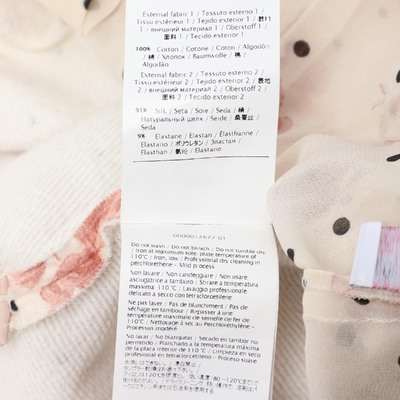 External fabric 1 / Tessuto esterno 1 /
Tissu extérieur 1 / Tejido exterior 1 /
1 / внешний материал 1 / Oberstoff 1 /
面料 1 / Tecido exterior 1
100% Cotton / Cotone / Coton / Algodón
/ 綿 / Хлопок / Baumwolle / 棉 /
Algodão
External fabric 2 / Tessuto esterno 2 /
Tissu extérieur 2 / Tejido exterior 2 / 表地
2 / внешний материал 2 / Oberstoff 2 /
面料 2 / Tecido exterior 2
91% Silk / Seta / Soie / Seda / 絹 /
Натуральный шелк / Seide / 桑蚕丝 /
Seda
9% Elastane / Elastan / Élasthanne /
Elastano / ポリウレタン / Эластан /
Elasthan / 氨纶 / Elastano
Do not wash / Do not bleach / Do not tumble dry
/ Iron at maximum sole-plate temperature of
110°C / Iron, low / Professional dry cleaning in
perchlorethène - Mild process
Non lavare / Non candeggiare / Non usare
asciugatrice a tamburo / Stirare a temperatura
massima 110°C / Lavaggio professionale
delicato a secco con tetracloroetilene
Ne pas laver / Pas de blanchiment / Pas de
séchage en tambour / Repasser à une
température maximale de semelle de fer de
110°C / Nettoyage à sec au Perchloréthylène -
Processus modéré
No lavar / No blanquear / Secado en tambor no
permitido / Planchado a la temperatura máxima
de la placa interior de 110°C / Limpieza en seco
profesional en tetracloroetileno - Proceso